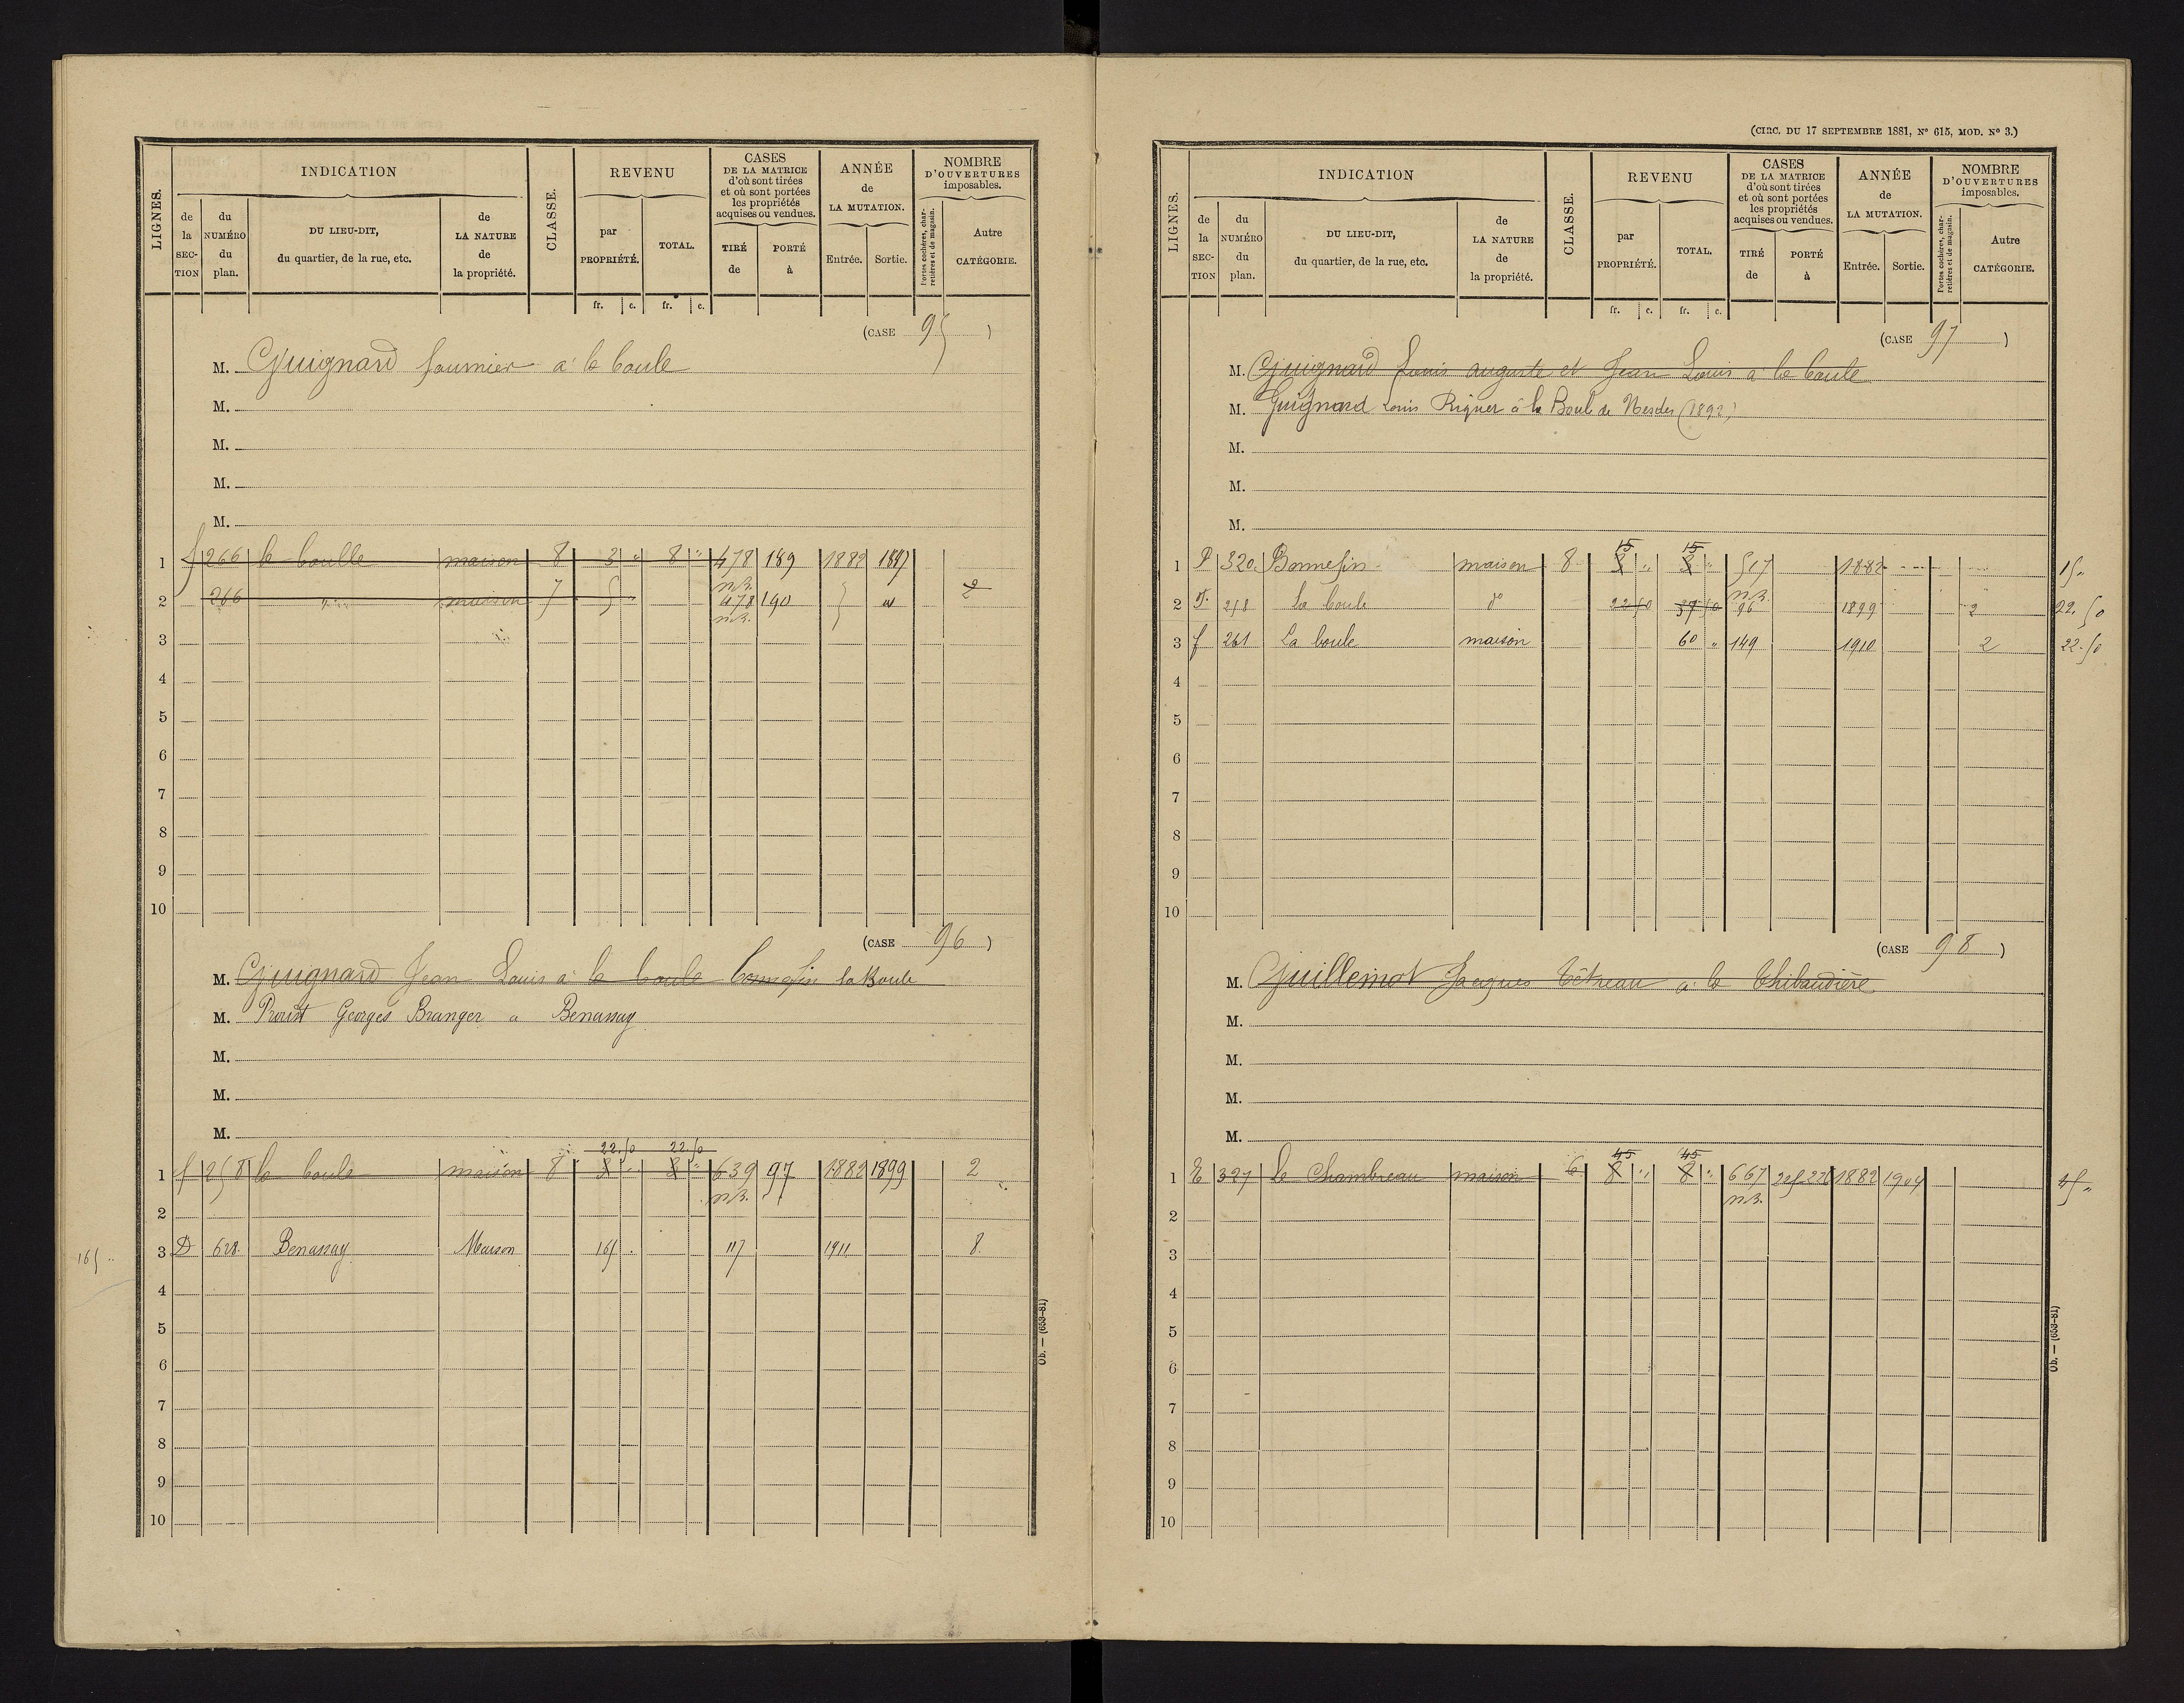 LIGNES. INDICATION CLASSE. REVENU CASES DE LA MATRICE d'où sont tirées et où sont portées les propriétés acquises ou vendues. ANNÉE de LA MUTATION. NOMBRE D'OUVERTURES imposables.
de la SECTION du NUMÉRO du plan. DU LIEU-DIT, du quartier, de la rue, etc. de LA NATURE de la propriété. par PROPRIÉTÉ. TOTAL. TIRÉ de PORTÉ à Entrée. Sortie. Portes cochères, charretières et de magasin. Autre CATÉGORIE.
fr. c. fr. c.
(CASE 95)
M. Guignard fournier à la boule
M.
M.
M.
M.
1 f 266 la boulle maison 8 3 " 8 " 478 189 1882 1897
n.B.
2 266 " maison 7 5 " 478 190 2
n.B.
3
4
5
6
7
8
9
10
(CASE 96)
M. Guignard Jean Louis à la boule la Boule
M. Proust Georges Branger a Benassay
M.
M.
M.
22.50 22.50
1 f 258 la boule maison 8 8 " 8 " 639 97 1882 1899 2
n.B.
2
165 " 3 D 628. Benassay Maison 165 . 117 1911 8.
4
5
6
7
8
9
10
Ob. — (653-81)
(CIRC. DU 17 SEPTEMBRE 1881, N° 615, MOD. N° 3.)
LIGNES. INDICATION CLASSE. REVENU CASES DE LA MATRICE d'où sont tirées et où sont portées les propriétés acquises ou vendues. ANNÉE de LA MUTATION. NOMBRE D'OUVERTURES imposables.
de la SECTION du NUMÉRO du plan. DU LIEU-DIT, du quartier, de la rue, etc. de LA NATURE de la propriété. par PROPRIÉTÉ. TOTAL. TIRÉ de PORTÉ à Entrée. Sortie. Portes cochères, charretières et de magasin. Autre CATÉGORIE.
fr. c. fr. c.
(CASE 97)
M. Guignard Louis auguste et Jean Louis à la boule
M. Guignard Louis Riquer à la Boule de Nesdes (1892)
M.
M.
M.
15 15
1 320 Bonnefin maison 8 8 " 8 " 517 1882 15 "
n.B.
2 F. 258 La boule d° 22 50 37 50 96 1899 2 22.50
3 f 261 La boule maison 60 " 149 1910 2 22.50
4
5
6
7
8
9
10
(CASE 98)
M. Guillemot Jacques Tétreau à la Thibaudière
M.
M.
M.
M.
45 45
1 E 327 le Chambreau maison 6 8 " 8 " 667 1882 1904 45 "
n.B.
2
3
4
5
6
7
8
9
10
Ob. — (653-81)